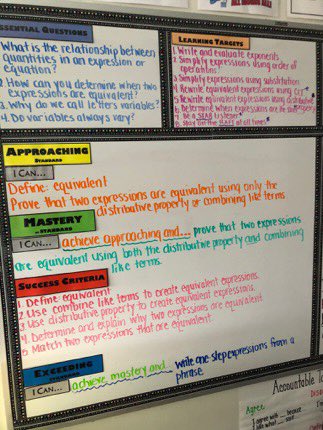 ESSENTIAL QUESTIONS
What is the relationship between
quantities in an expression or
equation?
2. How can you determine when two
expressions are equivalent?
3. Why do we call letters variables?
4. Do variables always vary?
LEARNING TARGETS
1. Write and evaluate exponents
2. Simplify expressions using order of
operations
3. Simplify expressions using substitution
4. Rewrite equivalent expressions using
5. Rewrite equivalent expressions using distributive
6. Determine when expressions are
7. Be a listener
8. at all times
APPROACHING
STANDARD
I CAN...
Define: equivalent
Prove that two expressions are equivalent using only the
distributive property or combining like terms
MASTERY
of STANDARD
I CAN...
achieve approaching and... prove that two expressions
are equivalent using both the distributive property and combining
like terms.
SUCCESS CRITERIA
1. Define equivalent
2. Use combine like terms to create equivalent expressions.
3. Use distributive property to create equivalent expressions.
4. Determine and explain why two expressions are equivalent
5. Match two expressions that are equivalent.
EXCEEDING
STANDARD
I CAN...
achieve mastery and... write one step expressions from a
phrase.
Accountable
Agree
I agree with because
I what said